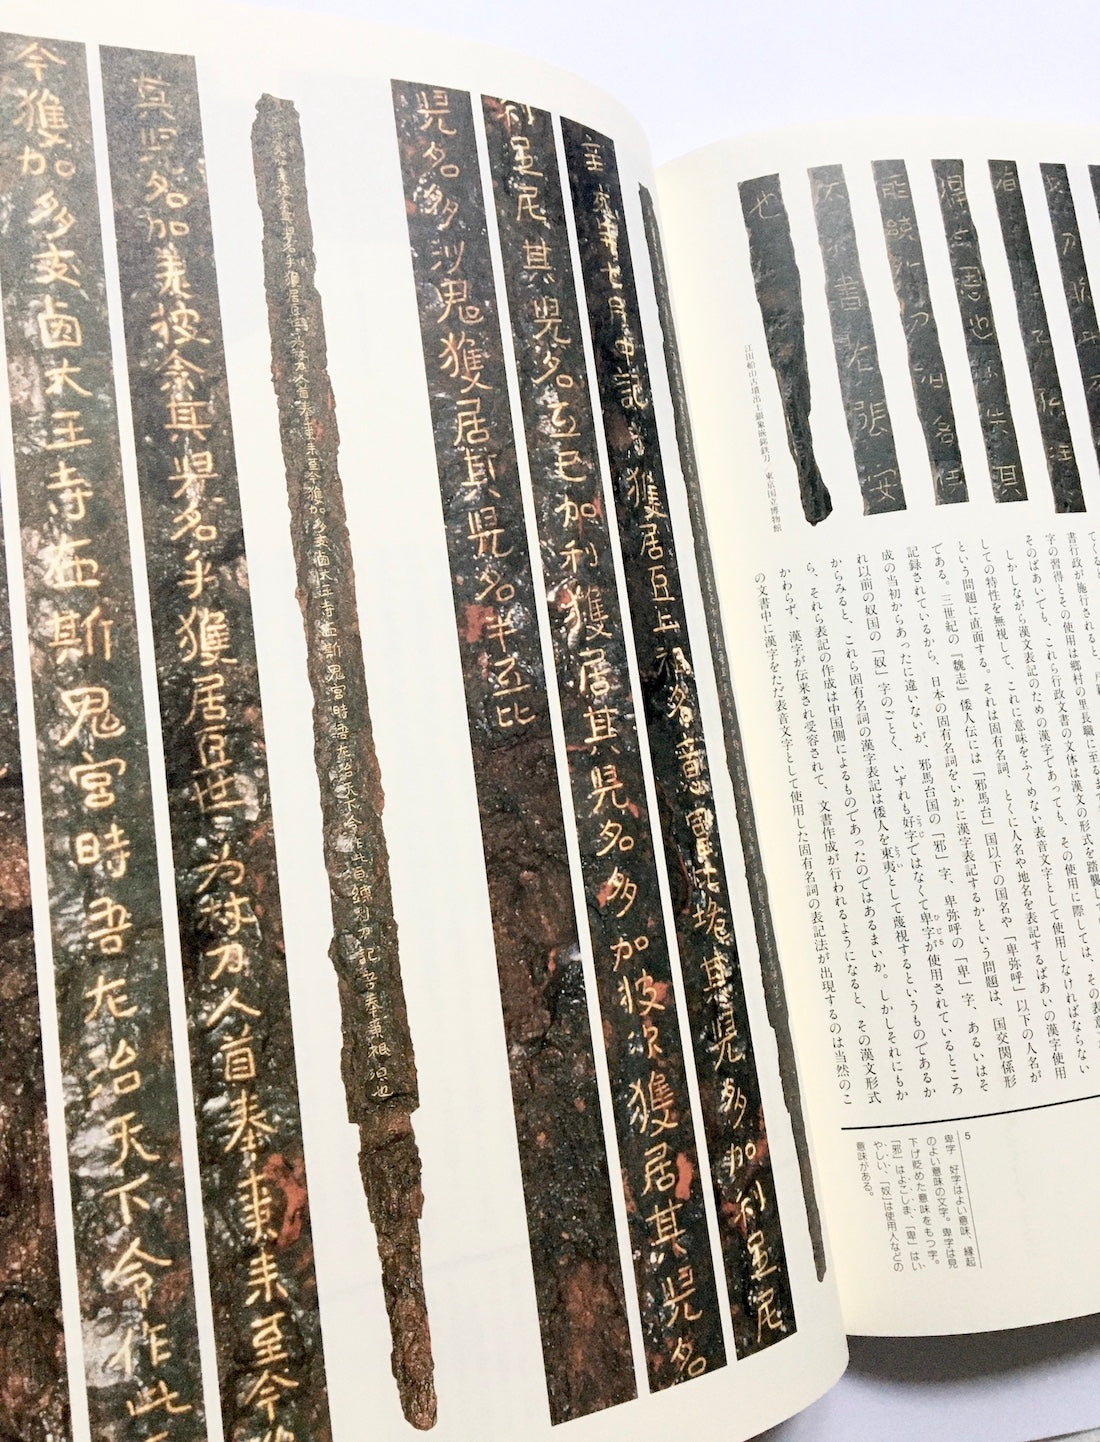 得三恩也
書者張安
也
江田船山古墳出土銀象嵌銘鉄刀／東京国立博物館
てくると、
書行政が施行されると、戸籍
字の習得とその使用は郷村の里長職に至るま
そのばあいでも、これら行政文書の文体は漢文の形式を踏襲し
しかしながら漢文表記のための漢字であっても、その使用に際しては、その表意
しての特性を無視して、これに意味をふくめない表音文字として使用しなければならない
という問題に直面する。それは固有名詞、とくに人名や地名を表記するばあいの漢字使用
である。三世紀の『魏志』倭人伝には「邪馬台」国以下の国名や「卑弥呼」以下の人名が
記録されているから、日本の固有名詞をいかに漢字表記するかという問題は、国交関係形
成の当初からあったに違いないが、邪馬台国の「邪」字、卑弥呼の「卑」字、あるいはそ
れ以前の奴国の「奴」字のごとく、いずれも好字ではなくて卑字が使用されているところ
からみると、これら固有名詞の漢字表記は倭人を東夷として蔑視するというものであるか
ら、それら表記の作成は中国側によるものであったのではあるまいか。しかしそれにもか
かわらず、漢字が伝来され受容されて、文書作成が行われるようになると、その漢文形式
の文書中に漢字をただ表音文字として使用した固有名詞の表記法が出現するのは当然のこ
5
卑字　好字はよい意味、縁起
のよい意味の文字。卑字は見
下げ貶めた意味をもつ字。
「邪」はよこしま、「卑」はい
やしい、「奴」は使用人などの
意味がある。
辛亥年七月中記乎獲居臣上祖名意富比垝其児多加利足尼
利足尼其児名弖已加利獲居其児名多加披次獲居其児名
児名多沙鬼獲居其児名半弖比
其児名加差披余其児名乎獲居臣世々為杖刀人首奉事来至今獲
今獲加多支鹵大王寺在斯鬼宮時吾左治天下令作此